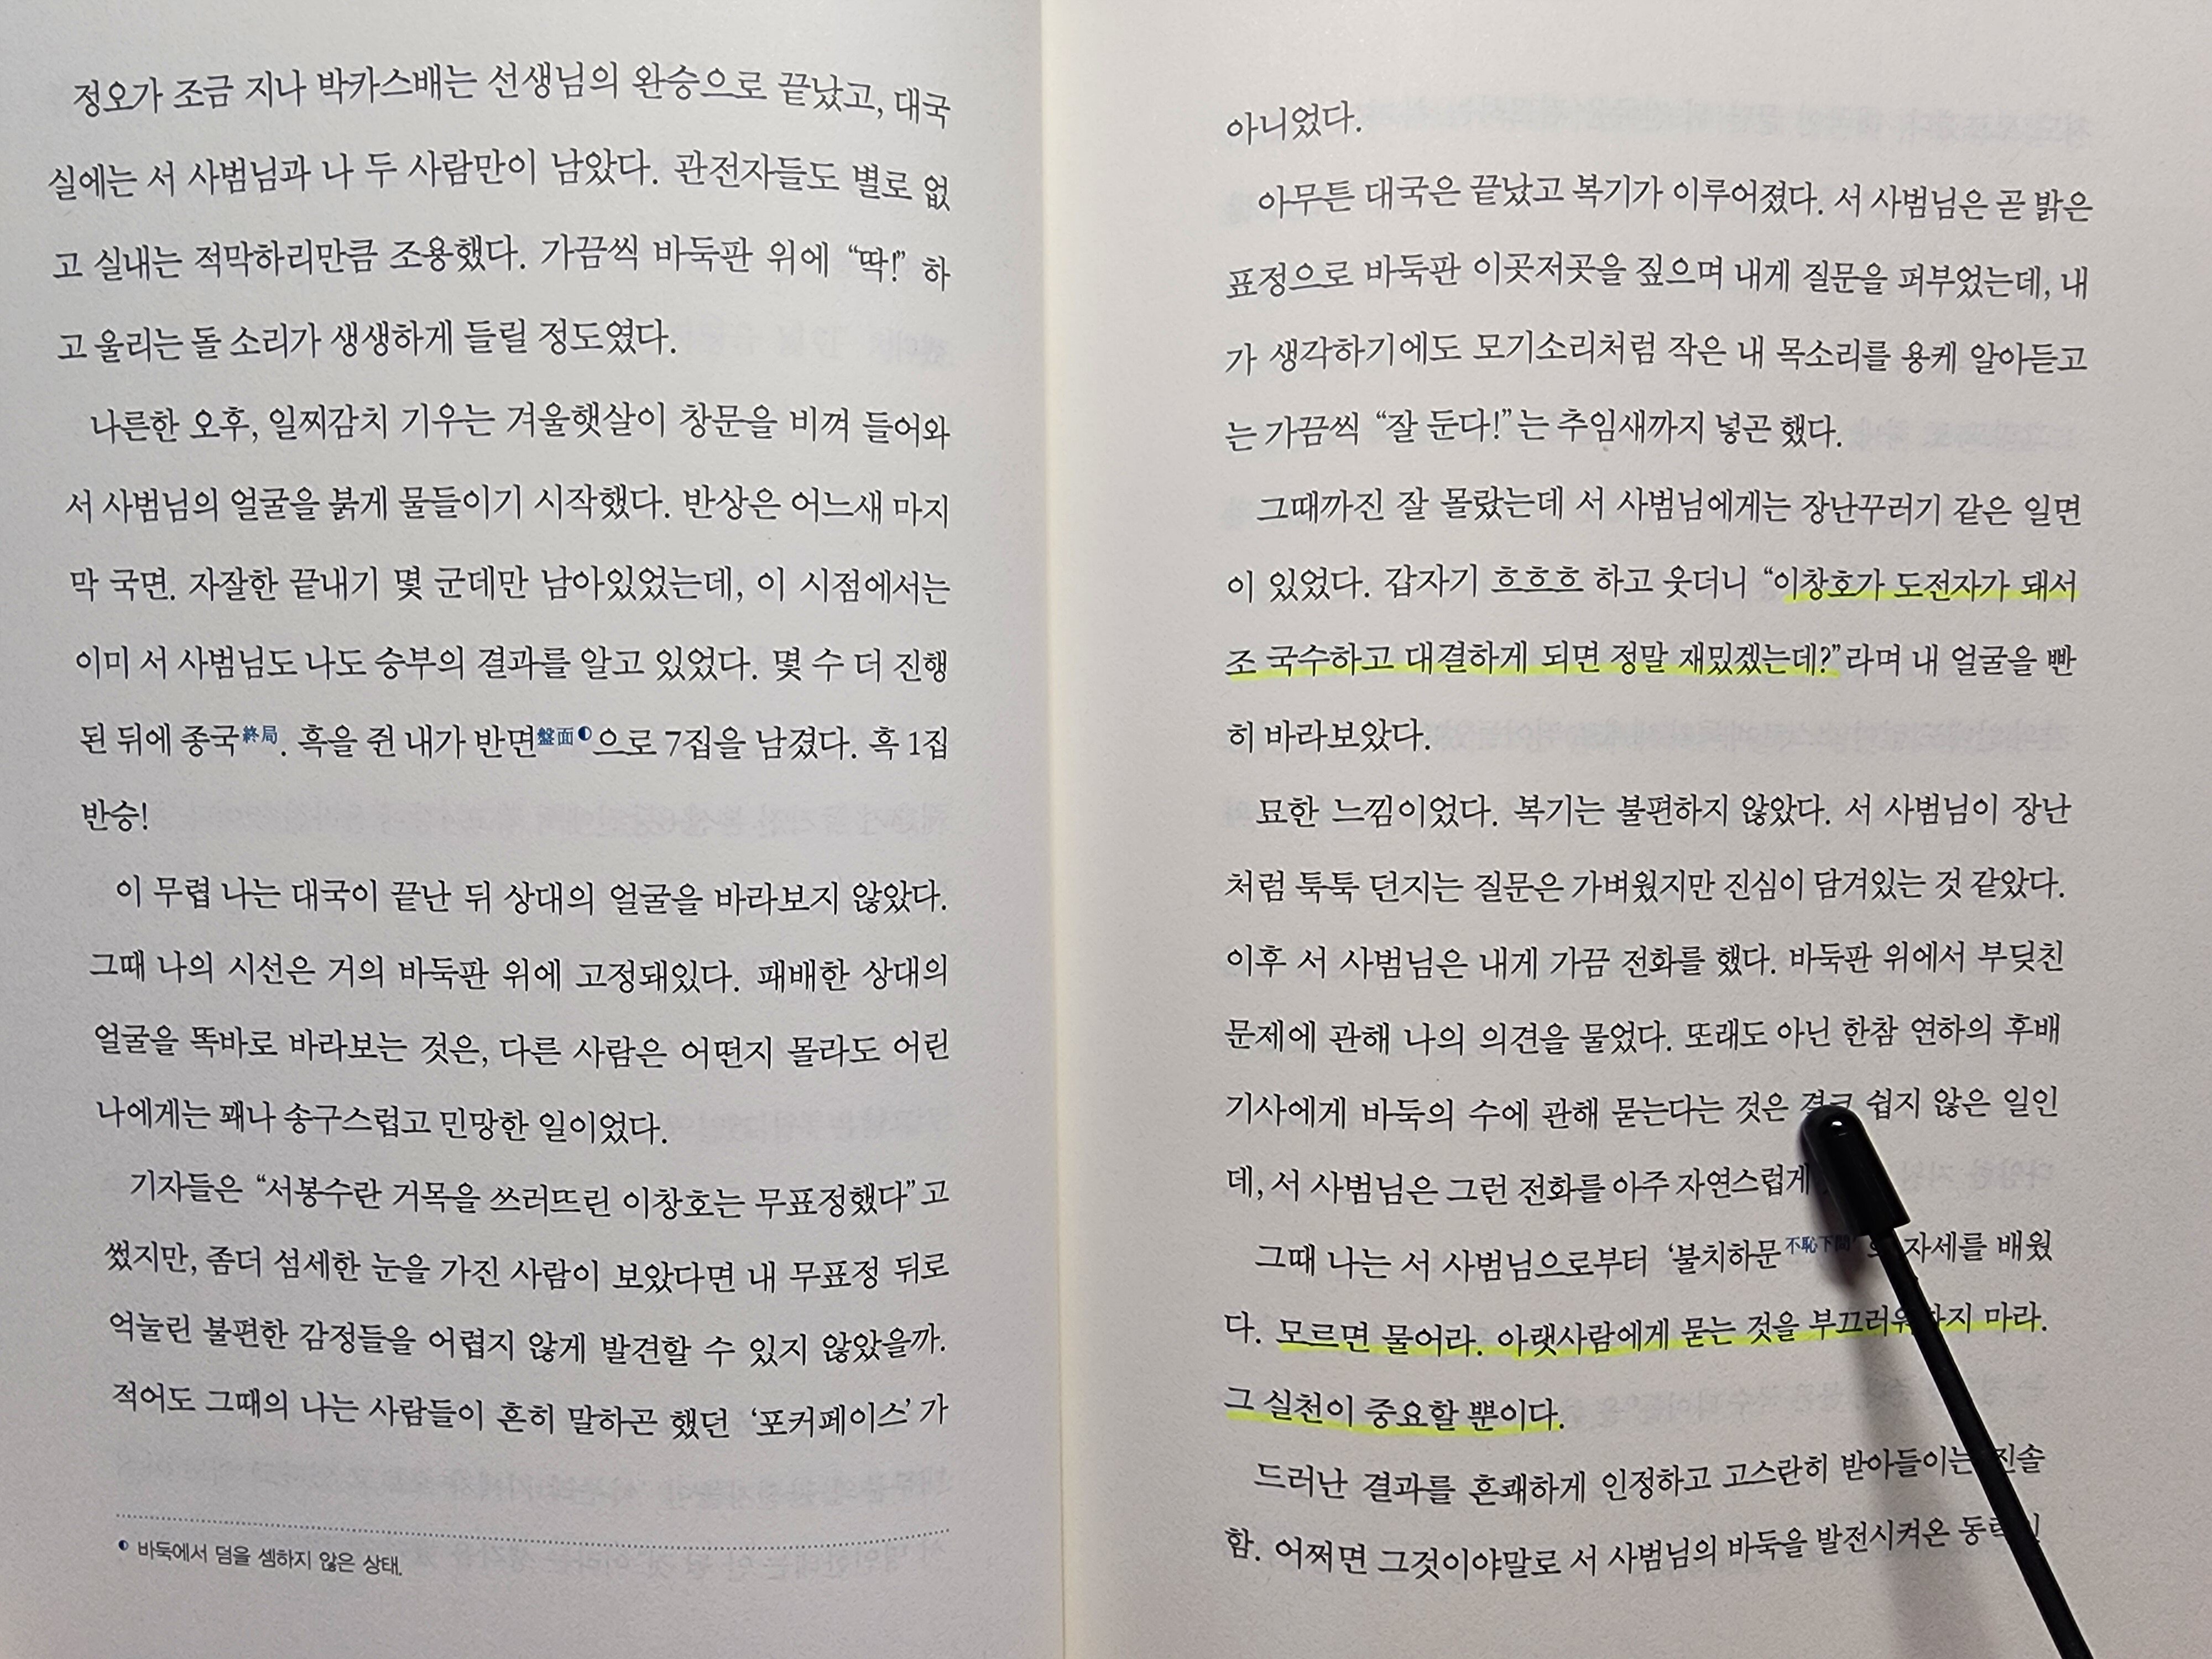 정오가 조금 지나 박카스배는 선생님의 완승으로 끝났고, 대국
실에는 서 사범님과 나 두 사람만이 남았다. 관전자들도 별로 없
고 실내는 적막하리만큼 조용했다. 가끔씩 바둑판 위에 “딱!” 하
고 울리는 돌 소리가 생생하게 들릴 정도였다.
나른한 오후, 일찌감치 기우는 겨울햇살이 창문을 비껴 들어와
서 사범님의 얼굴을 붉게 물들이기 시작했다. 반상은 어느새 마지
막 국면. 자잘한 끝내기 몇 군데만 남아있었는데, 이 시점에서는
이미 서 사범님도 나도 승부의 결과를 알고 있었다. 몇 수 더 진행
된 뒤에 종국終局. 흑을 쥔 내가 반면盤面◐으로 7집을 남겼다. 흑 1집
반승!
이 무렵 나는 대국이 끝난 뒤 상대의 얼굴을 바라보지 않았다.
그때 나의 시선은 거의 바둑판 위에 고정돼있다. 패배한 상대의
얼굴을 똑바로 바라보는 것은, 다른 사람은 어떤지 몰라도 어린
나에게는 꽤나 송구스럽고 민망한 일이었다.
기자들은 “서봉수란 거목을 쓰러뜨린 이창호는 무표정했다”고
썼지만, 좀더 섬세한 눈을 가진 사람이 보았다면 내 무표정 뒤로
억눌린 불편한 감정들을 어렵지 않게 발견할 수 있지 않았을까.
적어도 그때의 나는 사람들이 흔히 말하곤 했던 ‘포커페이스’가
◐ 바둑에서 덤을 셈하지 않은 상태.
아니었다.
아무튼 대국은 끝났고 복기가 이루어졌다. 서 사범님은 곧 밝은
표정으로 바둑판 이곳저곳을 짚으며 내게 질문을 퍼부었는데, 내
가 생각하기에도 모기소리처럼 작은 내 목소리를 용케 알아듣고
는 가끔씩 “잘 둔다!”는 추임새까지 넣곤 했다.
그때까진 잘 몰랐는데 서 사범님에게는 장난꾸러기 같은 일면
이 있었다. 갑자기 흐흐흐 하고 웃더니 “이창호가 도전자가 돼서
조 국수하고 대결하게 되면 정말 재밌겠는데?”라며 내 얼굴을 빤
히 바라보았다.
묘한 느낌이었다. 복기는 불편하지 않았다. 서 사범님이 장난
처럼 툭툭 던지는 질문은 가벼웠지만 진심이 담겨있는 것 같았다.
이후 서 사범님은 내게 가끔 전화를 했다. 바둑판 위에서 부딪친
문제에 관해 나의 의견을 물었다. 또래도 아닌 한참 연하의 후배
기사에게 바둑의 수에 관해 묻는다는 것은 결코 쉽지 않은 일인
데, 서 사범님은 그런 전화를 아주 자연스럽게
그때 나는 서 사범님으로부터 ‘불치하문不恥下問’의 자세를 배웠
다. 모르면 물어라. 아랫사람에게 묻는 것을 부끄러워하지 마라.
그 실천이 중요할 뿐이다.
드러난 결과를 흔쾌하게 인정하고 고스란히 받아들이는 진솔
함. 어쩌면 그것이야말로 서 사범님의 바둑을 발전시켜온